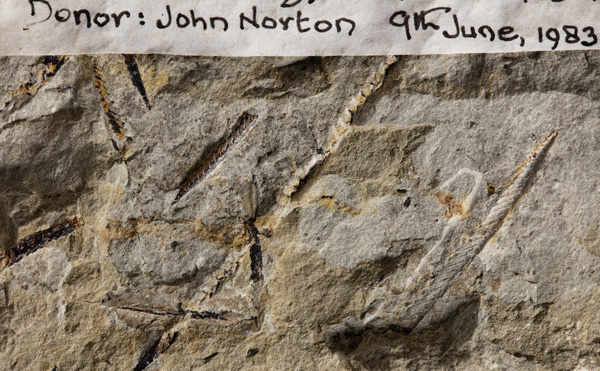 Donor: John Norton 9th June, 1983